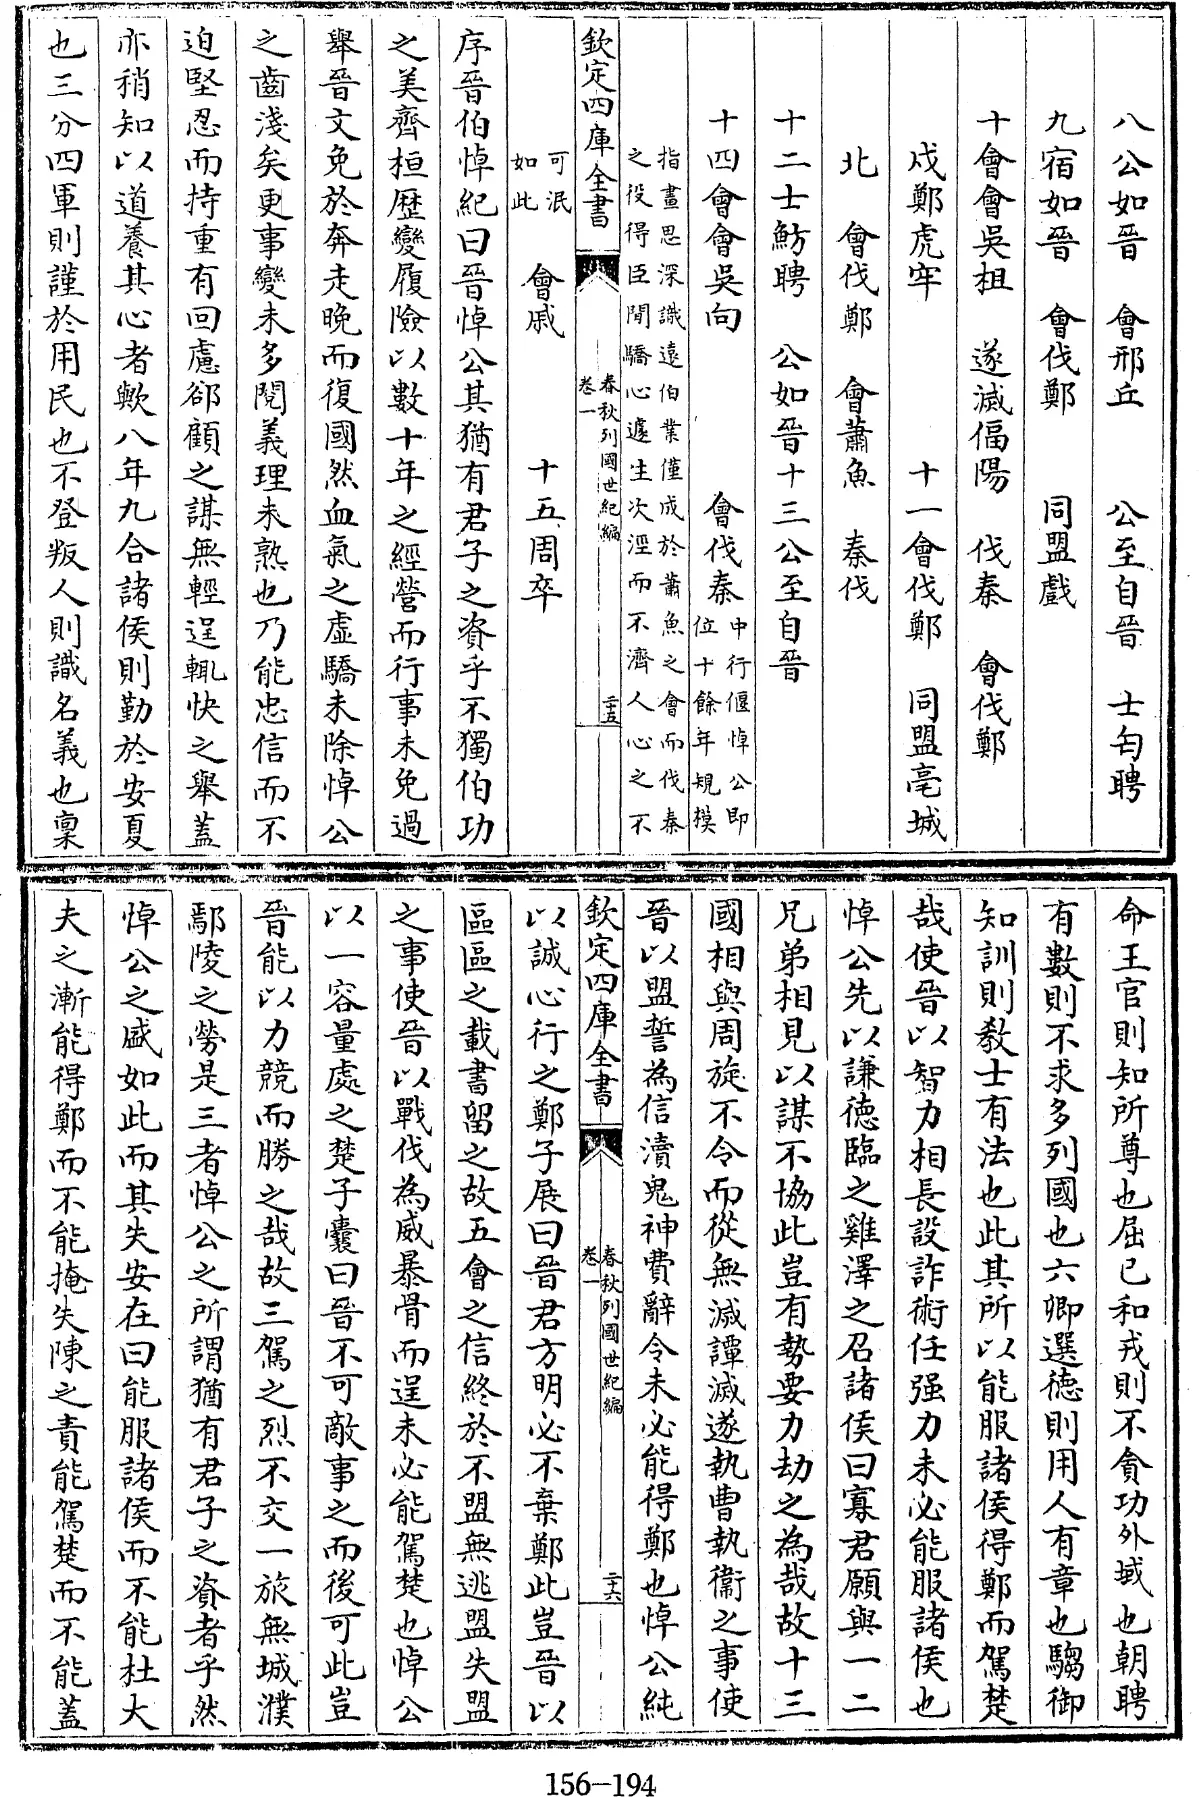 八公如晉　會邢丘　　公至自晉　士匄聘
九宿如晉　會伐鄭　　同盟戲
十會會吳柤　遂滅偪陽　伐秦　會伐鄭
戍鄭虎牢　　　　十一會伐鄭　同盟亳城
北　會伐鄭　會蕭魚　秦伐
十二士魴聘　公如晉十三公至自晉
十四會會吳向　　　　會伐秦中行偃悼公即
位十餘年規模
指畫思深識遠伯業僅成於蕭魚之會而伐秦
之役得臣閒驕心遽生次涇而不濟人心之不
欽定四庫全書
春秋列國世紀編
卷一
二十五
可泯
如此
會戚　　　十五周卒
序晉伯悼紀曰晉悼公其猶有君子之資乎不獨伯功
之美齊桓歷變履險以數十年之經營而行事未免過
舉晉文免於奔走晚而復國然血氣之虛驕未除悼公
之齒淺矣更事變未多閱義理未熟也乃能忠信而不
迫堅忍而持重有回慮郤顧之謀無輕逞輒快之舉蓋
亦稍知以道養其心者歟八年九合諸侯則勤於安夏
也三分四軍則謹於用民也不登叛人則識名義也稟
命王官則知所尊也屈已和戎則不貪功外域也朝聘
有數則不求多列國也六卿選德則用人有章也騶御
知訓則教士有法也此其所以能服諸侯得鄭而駕楚
哉使晉以智力相長設詐術任强力未必能服諸侯也
悼公先以謙德臨之雞澤之召諸侯曰寡君願與一二
兄弟相見以謀不協此豈有勢要力劫之為哉故十三
國相與周旋不令而從無滅譚滅遂執曹執衞之事使
晉以盟誓為信瀆鬼神費辭令未必能得鄭也悼公純
欽定四庫全書
春秋列國世紀編
卷一
二十六
以誠心行之鄭子展曰晉君方明必不棄鄭此豈晉以
區區之載書留之故五會之信終於不盟無逃盟失盟
之事使晉以戰伐為威暴骨而逞未必能駕楚也悼公
以一容量處之楚子囊曰晉不可敵事之而後可此豈
晉能以力競而勝之哉故三駕之烈不交一旅無城濮
鄢陵之勞是三者悼公之所謂猶有君子之資者乎然
悼公之盛如此而其失安在曰能服諸侯而不能杜大
夫之漸能得鄭而不能掩失陳之責能駕楚而不能蓋
156-194